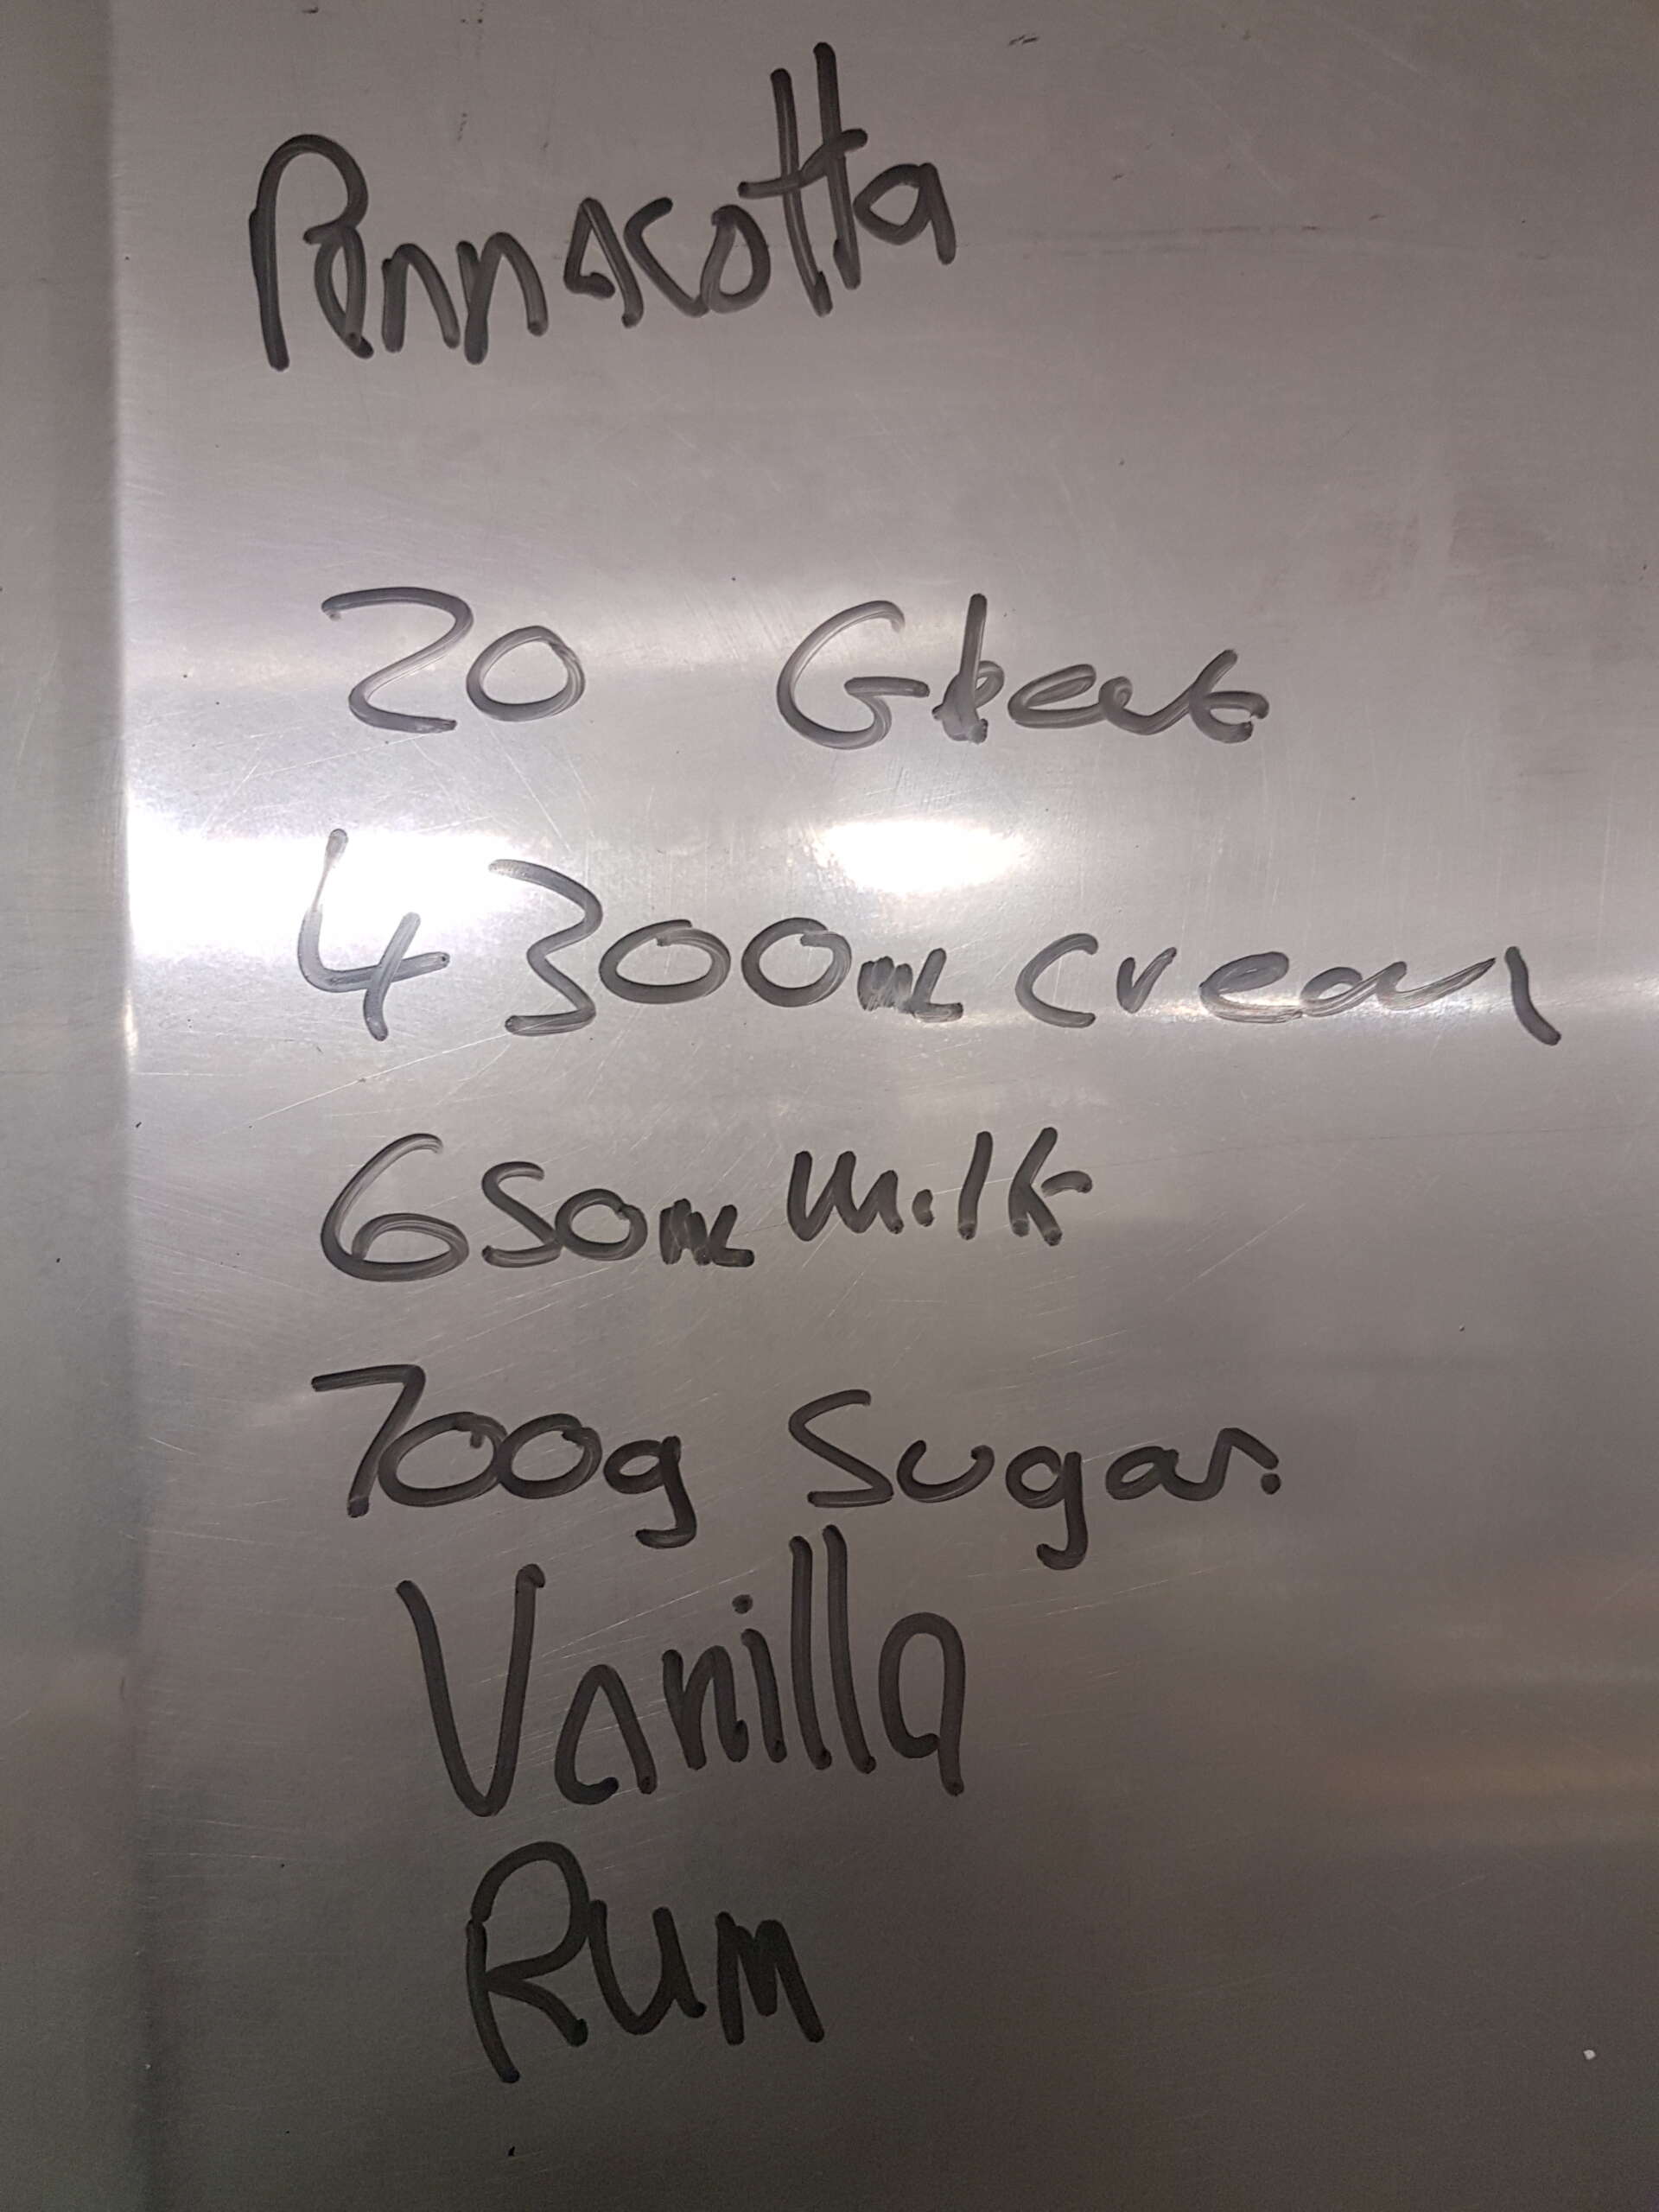 Pannacotta
20
4300mL Cream
650mL Milk
700g Sugar.
Vanilla
Rum